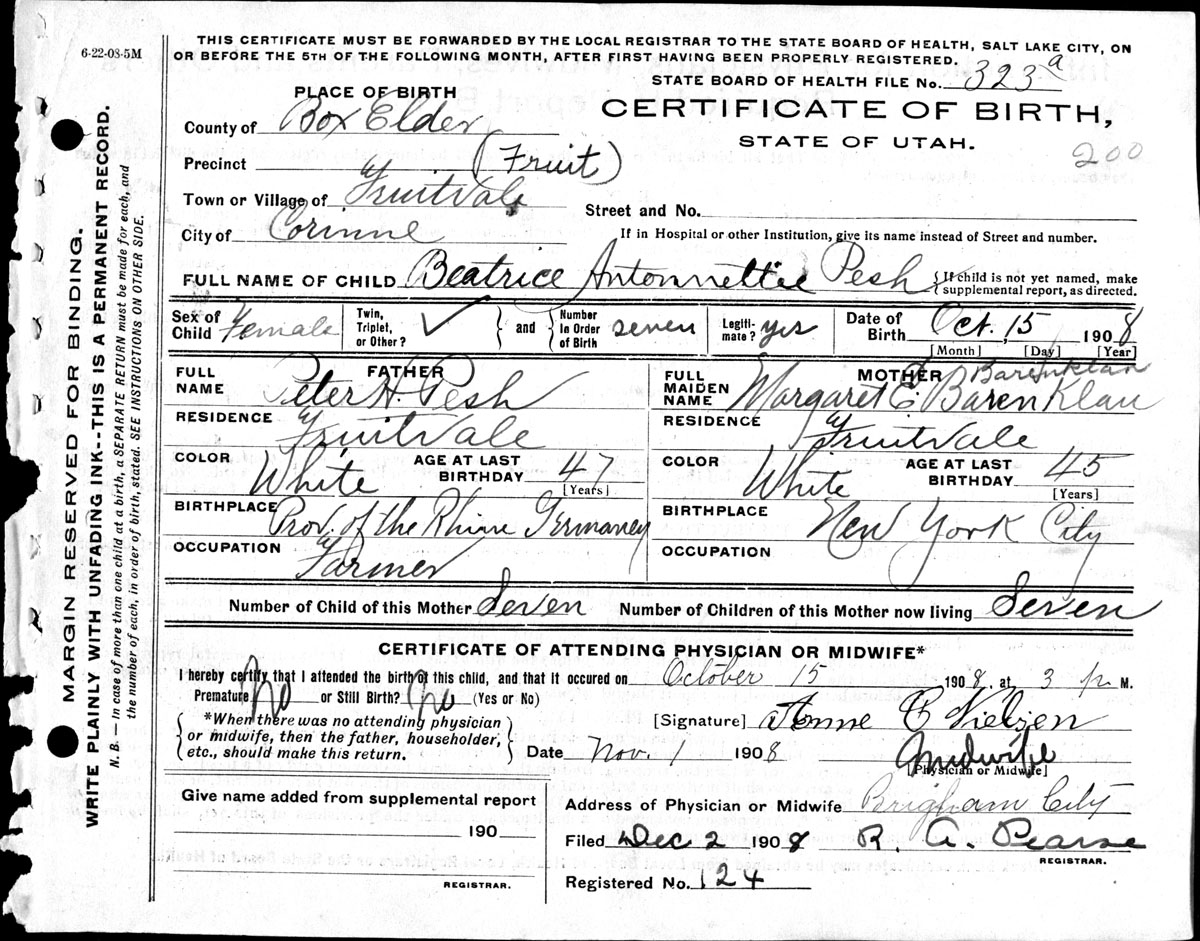 6-22-08-5M
THIS CERTIFICATE MUST BE FORWARDED BY THE LOCAL REGISTRAR TO THE STATE BOARD OF HEALTH, SALT LAKE CITY, ON
OR BEFORE THE 5TH OF THE FOLLOWING MONTH, AFTER FIRST HAVING BEEN PROPERLY REGISTERED.
STATE BOARD OF HEALTH FILE No. 323 a
PLACE OF BIRTH
CERTIFICATE OF BIRTH,
STATE OF UTAH.
200
County of Box Elder
Precinct (Fruit)
Town or Village of Fruitvale
Street and No.
City of Corinne
If in Hospital or other Institution, give its name instead of Street and number.
FULL NAME OF CHILD Beatrice Antonnettie Pesh {If child is not yet named, make
supplemental report, as directed.
Sex of Child Female
Twin, Triplet, or Other? ✓ } and { Number In Order of Birth seven
Legiti-mate? yes
Date of Birth Oct. 15, 1908
[Month] [Day] [Year]
FATHER
FULL NAME Peter H. Pesh
RESIDENCE Fruitvale
COLOR White AGE AT LAST BIRTHDAY 47 [Years]
BIRTHPLACE Prov. of the Rhine Germaney
OCCUPATION Farmer
MOTHER Barenklau
FULL MAIDEN NAME Margaret E. BarenKlau
RESIDENCE Fruitvale
COLOR White AGE AT LAST BIRTHDAY 45 [Years]
BIRTHPLACE New York City
OCCUPATION
Number of Child of this Mother Seven Number of Children of this Mother now living Seven
CERTIFICATE OF ATTENDING PHYSICIAN OR MIDWIFE*
I hereby certify that I attended the birth of this child, and that it occured on October 15 1908, at 3 p M.
Premature No or Still Birth? No (Yes or No)
{ *When there was no attending physician
or midwife, then the father, householder,
etc., should make this return. }
[Signature] Anne C Nielsen
Date Nov. 1 1908 Midwife
[Physician or Midwife]
Give name added from supplemental report
190
REGISTRAR.
Address of Physician or Midwife Brigham City
Filed Dec 2 1908 R. A. Pearse
REGISTRAR.
Registered No. 124
MARGIN RESERVED FOR BINDING.
WRITE PLAINLY WITH UNFADING INK--THIS IS A PERMANENT RECORD.
N. B. — In case of more than one child at a birth, a SEPARATE RETURN must be made for each, and
the number of each, in order of birth, stated. SEE INSTRUCTIONS ON OTHER SIDE.